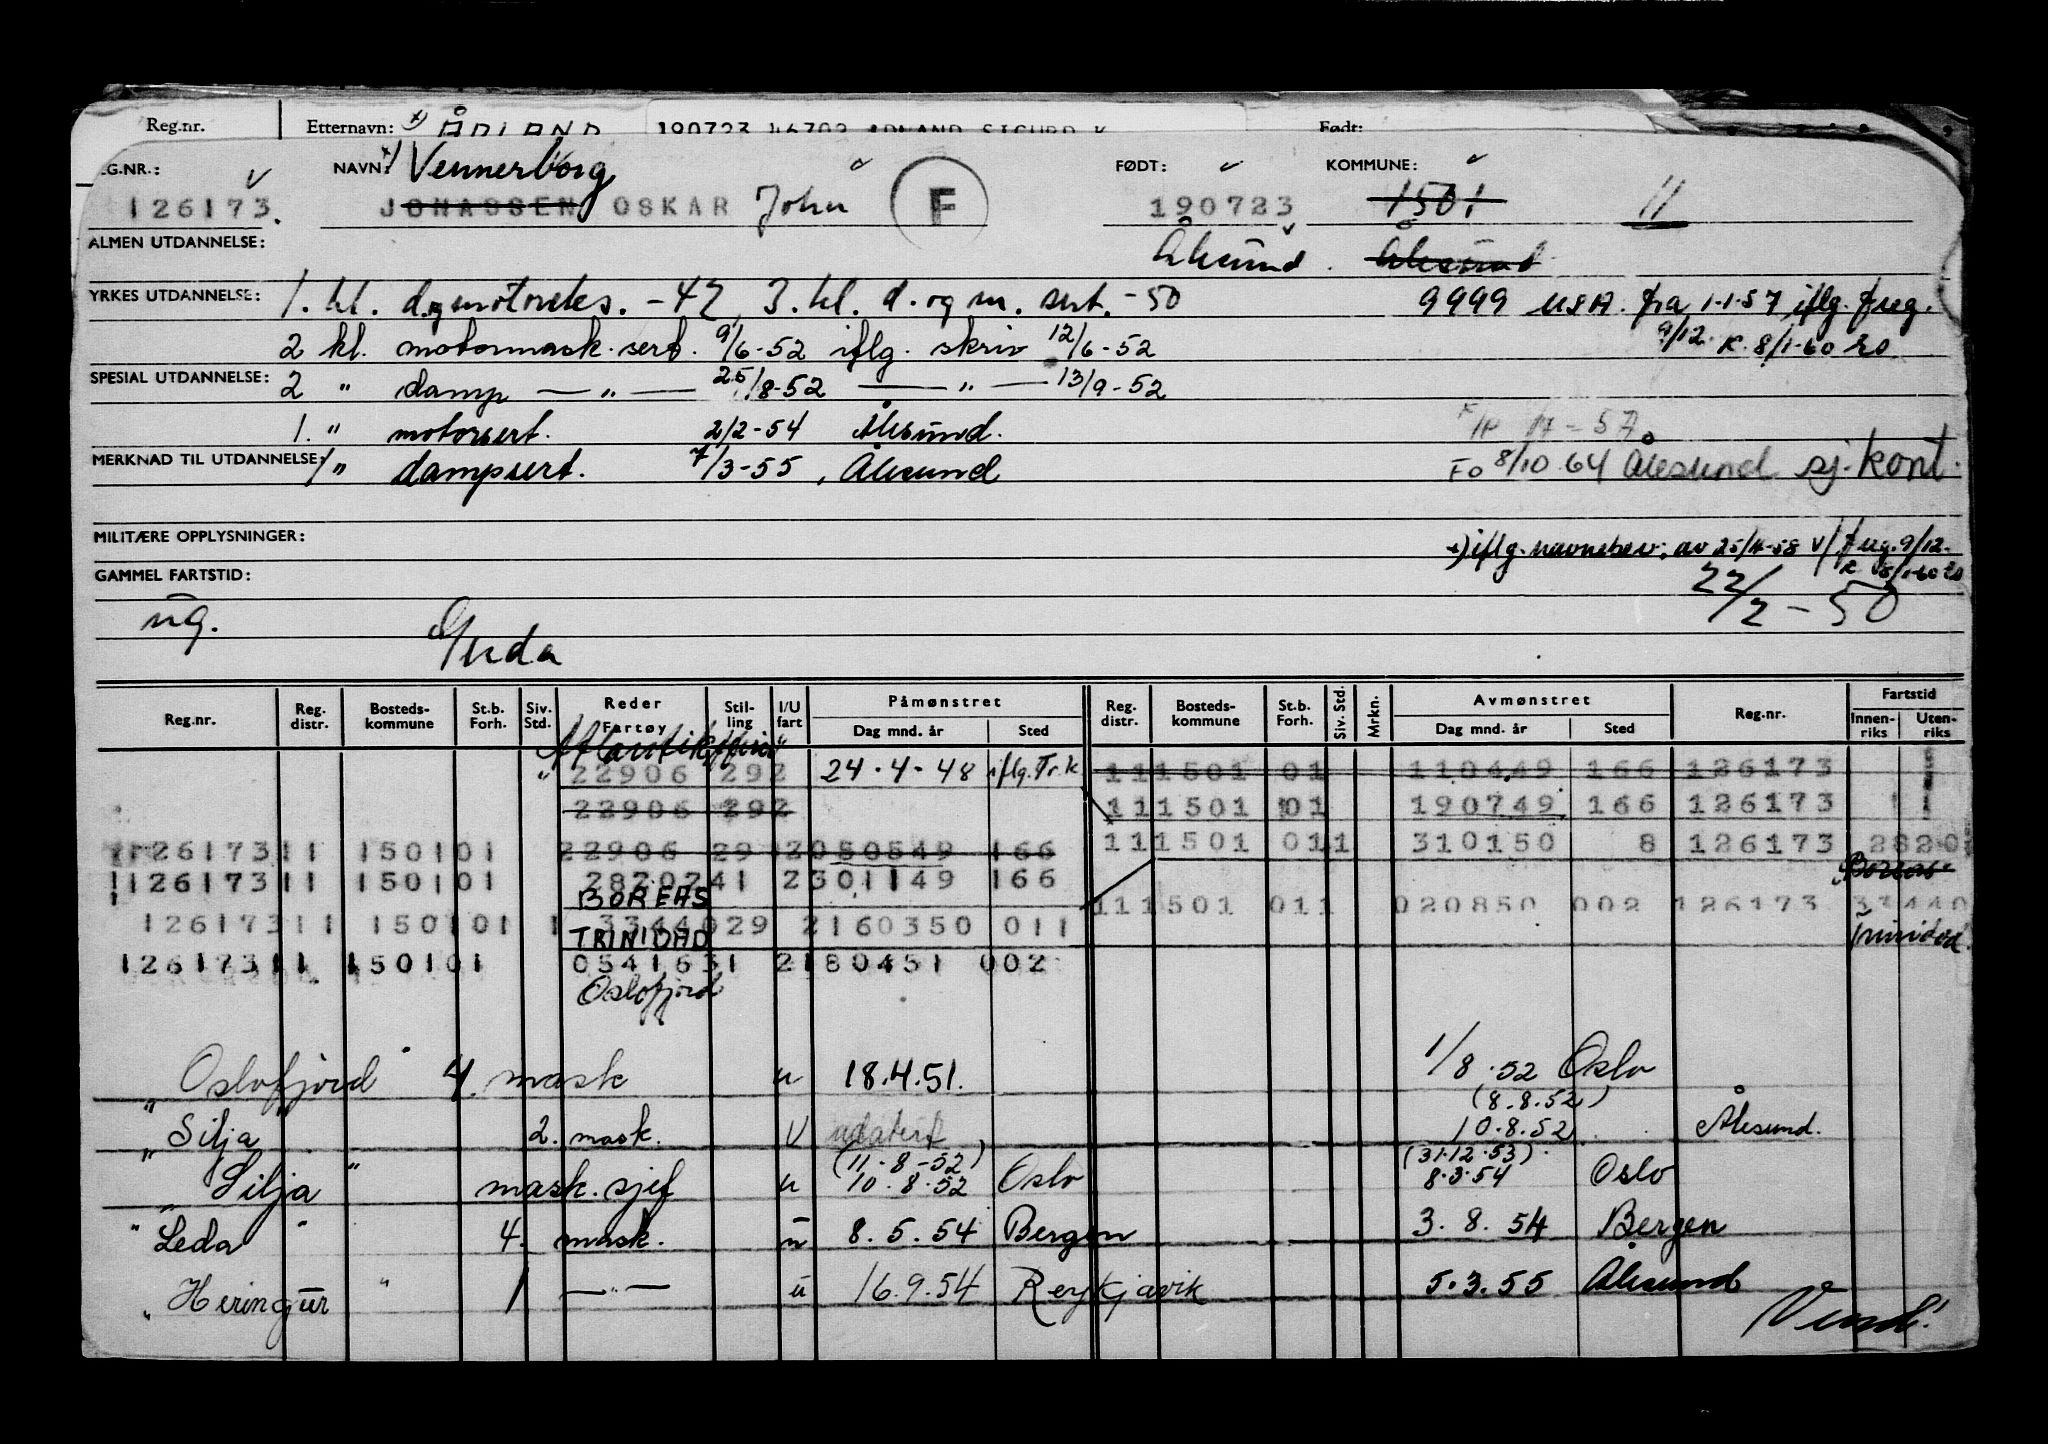 Reg.nr. Etternavn: x) ÅDLAND 190723 46702 ADLAND SIGURD K Født:
EG.NR.: NAVN: x) Vennerborg FØDT: KOMMUNE:
126173. JOHASSEN OSKAR John F 190723 1501 11
ALMEN UTDANNELSE: Ålesund. Ålesund
YRKES UTDANNELSE: 1. kl. d.og motoreks. -47, 3. kl. d. og m. sert. -50 9999 USA. fra 1-1-57 iflg. freg.
2 kl. motormask. sert. 9/6-52 iflg. skriv 12/6-52 9/12. K. 8/1-60
SPESIAL UTDANNELSE: 2 " damp — " — 25/8-52 — " — 13/9-52
1. " motorsert. 2/2-54 Ålesund.
MERKNAD TIL UTDANNELSE: 1 " dampsert. 7/3-55, Ålesund Fo 8/10 64 Ålesund sj. kont.
MILITÆRE OPPLYSNINGER: x) iflg. navnebev. av 25/4-58 v/freg. 9/12.
GAMMEL FARTSTID: K 8/1-60
22/2 - 50
ug. Gerda
Reg.nr. Reg. distr. Bosteds- kommune St.b. Forh. Siv. Std. Reder Fartøy Stil- ling I/U fart Påmønstret Dag mnd. år Sted Reg. distr. Bosteds- kommune St.b. Forh. Siv. Std. Mrkn. Avmønstret Dag mnd. år Sted Reg.nr. Fartstid Innen- riks Uten- riks
" 22906 292 24-4-48 iflg. Tr.k 111501 01 110449 166 126173
22906 292 111501 01 190749 166 126173
126173 11 150101 22906 29 2050549 166 111501 011 310150 8 126173 2820
126173 11 150101 2820241 2301149 166 Boreas
BOREAS
126173 11 150101 1 3344029 2160350 011 111501 011 020850 002 126173 33440
TRINIDAD Trinidad.
126173 11 150101 0541631 2180451 002
Oslofjord
" Oslofjord " 4. mask u 18.4.51. 1/8.52 Oslo
(8.8.52)
" Silja 2. mask. U udatert 10.8.52 Ålesund.
(11-8-52) (31.12.53)
" Silja " mask. sjef u 10.8.52 Oslo 8.3.54 Oslo
" Leda " 4. mask. u 8.5.54 Bergen 3.8.54 Bergen
" Heringur " 1 — " — u 16.9.54 Reykjavik 5.3.55 Ålesund
Vend!